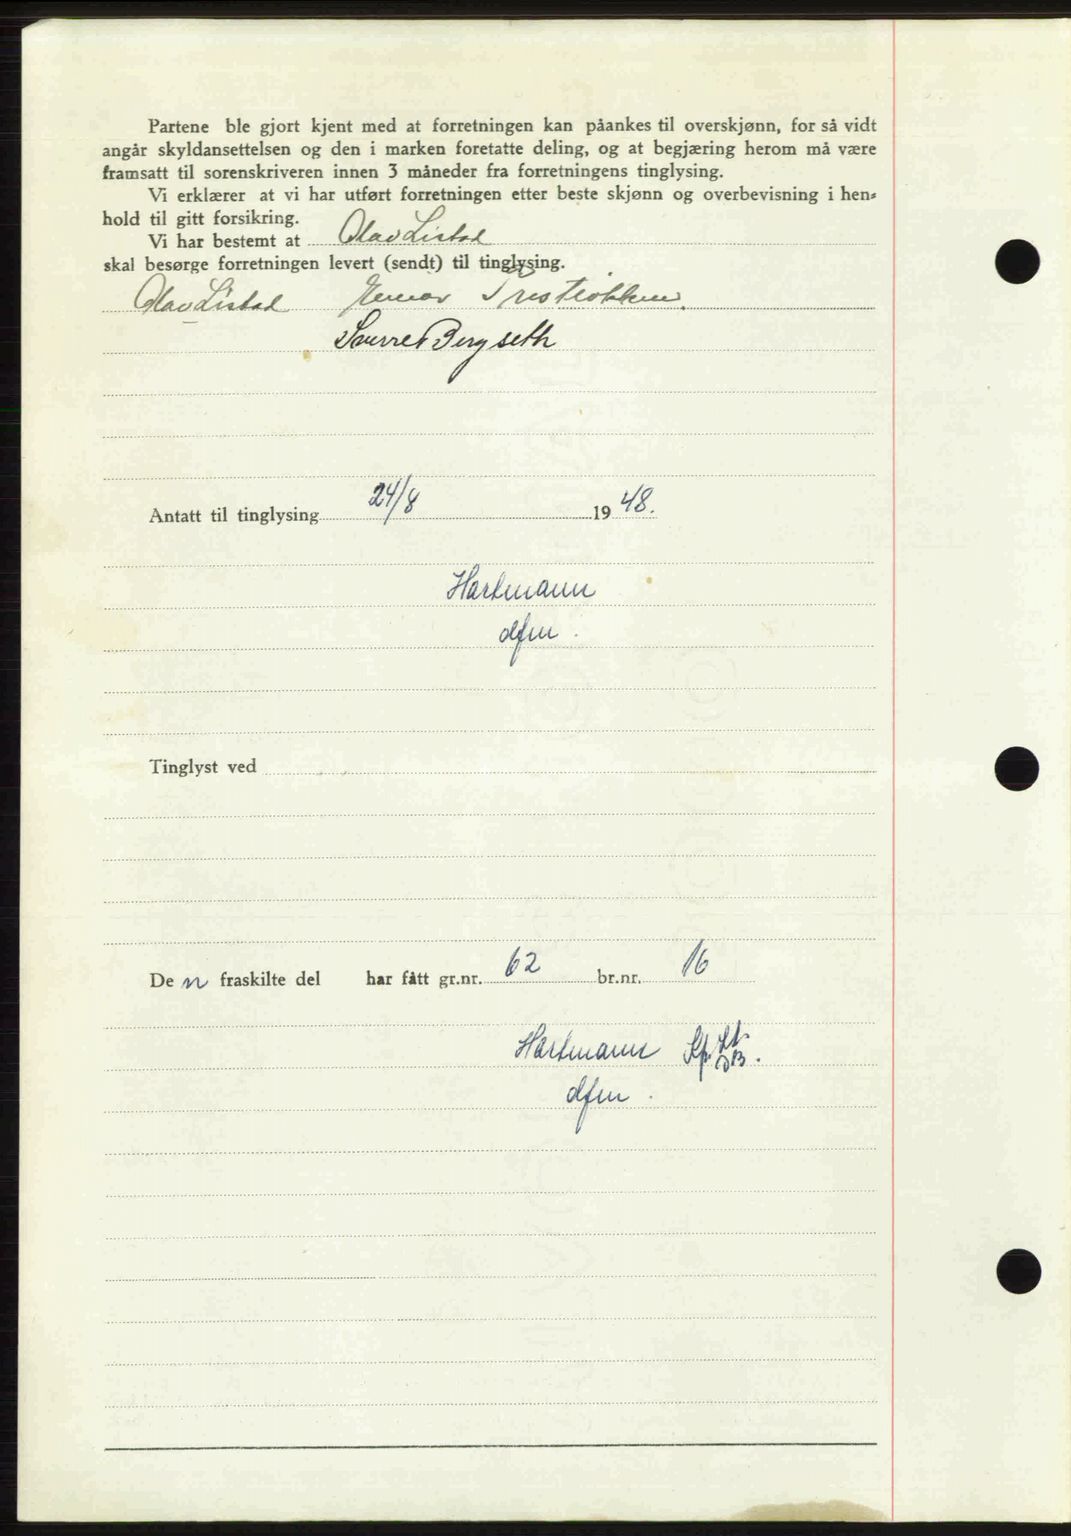 Partene ble gjort kjent med at forretningen kan påankes til overskjønn, for så vidt
angår skyldansettelsen og den i marken foretatte deling, og at begjæring herom må være
framsatt til sorenskriveren innen 3 måneder fra forretningens tinglysing.
Vi erklærer at vi har utført forretningen etter beste skjønn og overbevisning i hen-
hold til gitt forsikring.
Vi har bestemt at Olav Listad
skal besørge forretningen levert (sendt) til tinglysing.
Olav Listad
Sverre Bergseth
Antatt til tinglysing 24/8 1948.
Hartmann
dfm.
Tinglyst ved
De n fraskilte del har fått gr.nr. 62 br.nr. 16
Hartmann
dfm.